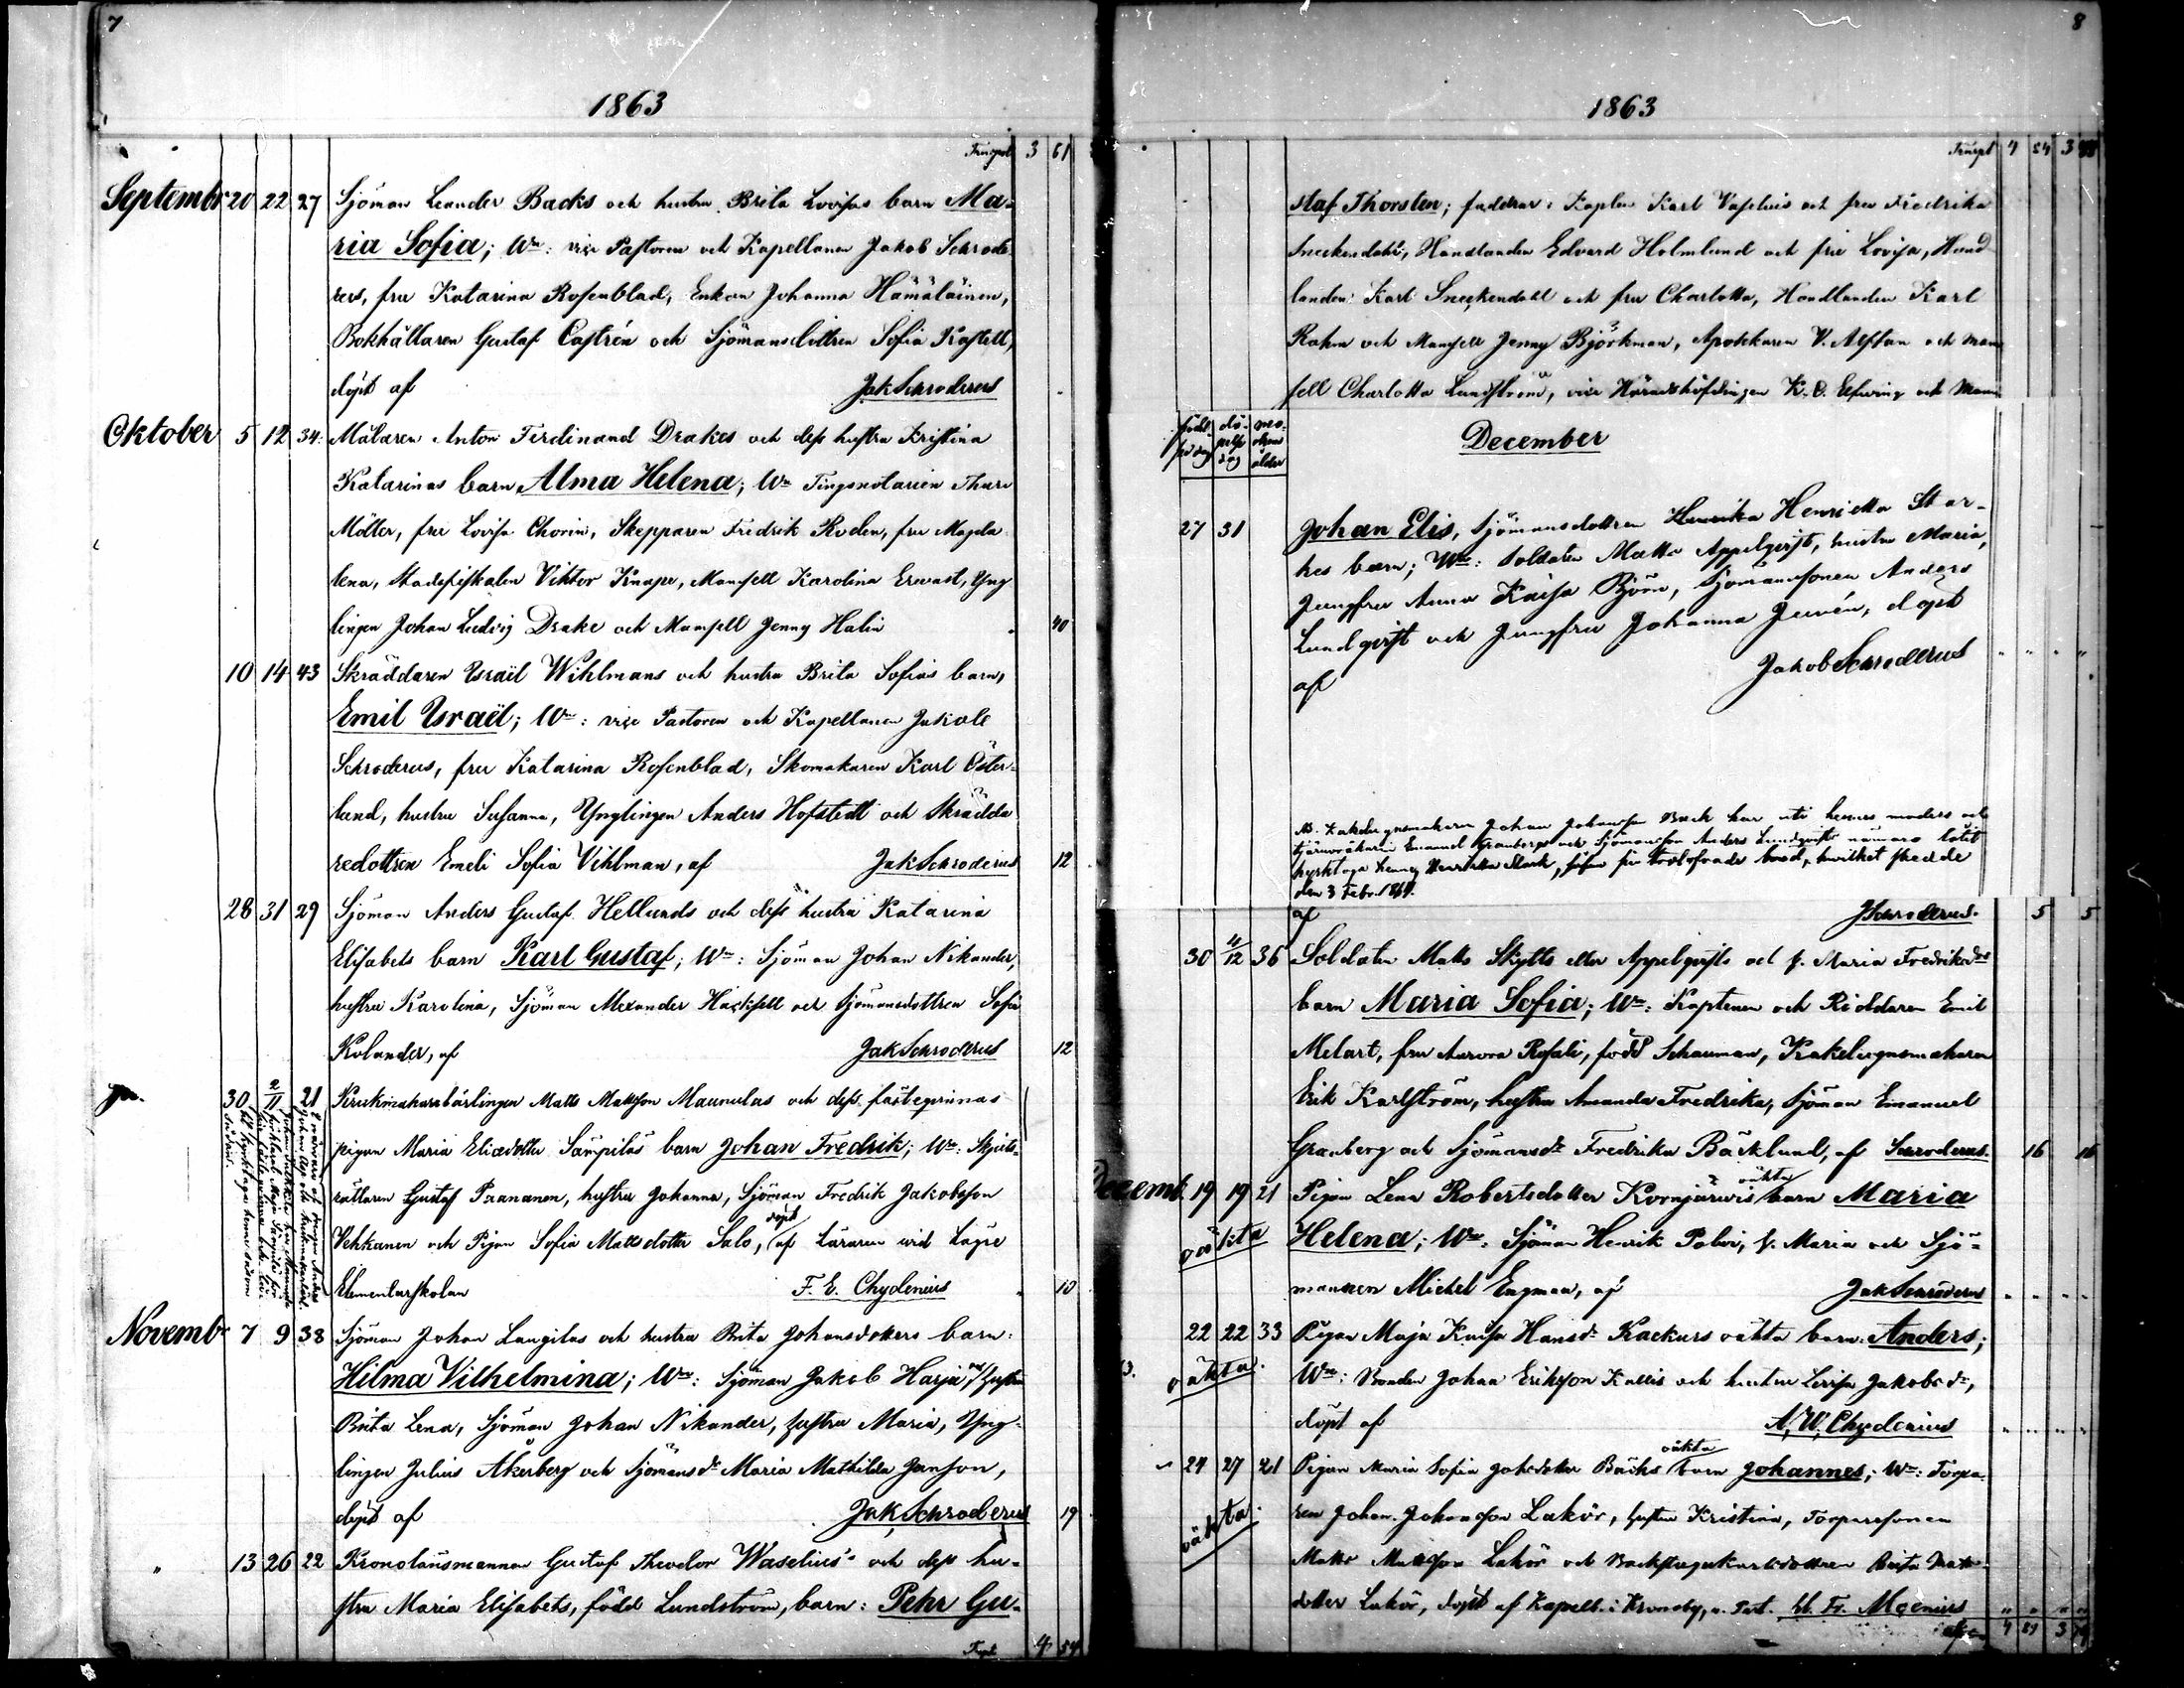 7
1863
Transport 3 61
September 20 22 27 Sjöman Leander Backs och hustru Brita Lovisas barn Ma-
ria Sofia; Wn: vice Pastoren och Kapellanen Jakob Schrode-
rus, fru Katarina Rosenblad, Enkan Johanna Hämäläinen,
Bokhållaren Gustaf Castrén och Sjömansdottren Sofia Kastell,
döpt af Jak Schroderus
Oktober 5 12 34 Målaren Anton Ferdinand Drakes och dess hustru Kristina
Katarinas barn, Alma Helena; Wn Tingsnotarien Thure
Möller, fru Lovisa Chorin, Skepparen Fredrik Roden, fru Magda
lena, Stadsfiskalen Viktor Knape, Mamsell Karolina Ervast, Yng
lingen Johan Ludvig Drake och Mamsell Jenny Halin 40
10 14 43 Skräddaren Israël Wihlmans och hustru Brita Sofias barn,
Emil Israël; Wn: vice Pastoren och Kapellanen Jakob
Schroderus, fru Katarina Rosenblad, Skomakaren Karl Öster-
lund, hustru Susanna, Ynglingen Anders Hofstedt och Skrädda
redottren Emeli Sofia Vihlman, af Jak Schroderus 12
28 31 29 Sjöman Anders Gustaf Hellunds och dess hustru Katarina
Elisabets barn Karl Gustaf; Wn: Sjöman Johan Nikander,
hustru Karolina, Sjöman Alexander Hacksell och Sjömansdottren Sofia
Kolander, af Jak Schroderus 12
30 2/11 21 Krukmakarebärlingen Matts Mattsson Maunulas och dess fästeqvinnas
pigan Maria Eliædotter Sämpiläs barn Johan Fredrik; Wn:
Gustaf Paananen, hustru Johanna, Sjöman Fredrik Jakobsson
Vehkanen och Pigan Sofia Mattsdotter Salo, döpt af Läraren vid Lägre
Elementarskolan F. E. Chydenius 10
Novembr 7 9 38 Sjöman Johan Langilas och hustru Brita Johansdotters barn:
Hilma Vilhelmina; Wn: Sjöman Jakob Harju, hustru
Brita Lena, Sjöman Johan Nikander, hustru Maria, Yng-
lingen Julius Åkerberg och Sjömansdr Maria Mathilda Janson,
döpt af Jak Schroderus 19
" 13 26 22 Kronolänsmannen Gustaf Theodor Waselius's och dess hu-
stru Maria Elisabets, född Lundström, barn: Pehr Gu-
Trspt 4 54
8
1863
Transpt 4 54 3
staf Thorsten; faddrar: Kaplan Karl Vaselius och fru Fredrika
Sneckendahl, Handlanden Edvard Holmlund och fru Lovisa, Hand
landen Karl Sneckendahl och fru Charlotta, Handlanden Karl
Rahm och Mamsell Jenny Björkman, Apotekaren V. Alftan och Mam
sell Charlotta Lundström, vice Häradshöfdingen K. O. Elfving och Mam
födel-
se dag dö-
pelse
dag mo-
drens
ålder December
27 31 Johan Elis, Sjömansdottren Henrika Henrietta Star-
kes barn; Wn: Soldaten Matts Appelqvist, hustru Maria,
Jungfru Anna Kaisa Björn, Sjömanssonen Anders
Lundqvist och Jungfru Johanna Juvén, döpt
af Jakob Schroderus
NB. Kakelugnsmakaren Johan Johansson Back har uti hennes moders och
Emanuel Granbergs och Sjömansson Anders Lundqvists närvaro låtit
kyrktaga henne Henrietta Stark, såsom sin trolofvade brud, hvilket skedde
den 3 Febr. 1864.
af J Schroderus. 5 5
30 4/12 36 Soldaten Matts Skytts eller Appelqvists och h. Maria Fredriksdrs
barn Maria Sofia; Wn: Kaptenen och Riddaren Emil
Melart, fru Aurora Rosali, född Schauman, Kakelugnsmakaren
Erik Karlström, hustru Amanda Fredrika, Sjöman Emanuel
Granberg och Sjömansdr Fredrika Bäcklund, af Schroderus. 16 16
Decemb. 19 19 21 Pigan Lena Robertsdotter Kornjärvis oäkta barn Maria
oäkta Helena; Wn: Sjöman Henrik Polvi, h. Maria och Sjö-
mannen Michel Engman, af Jak Schroderus
22 22 33 Pigan Maja Kaisa Hansdr Kackurs oäkta barn: Anders;
oäkta. Wn: Bonden Johan Eriksson Kallis och hustru Lovisa Jakobsdr,
döpt af A. W. Chydenius
24 27 21 Pigan Maria Sofia Johsdotter Bäcks oäkta barn Johannes; Wn: Torpa-
oäkta. ren Johan Johansson Lakör, hustru Kristina, Torparesonen
Matts Mattsson Lakör och Backstugukarlsdottren Brita Matts-
dotter Lakör, döpt af Kapell. i Kronoby, v. Past.